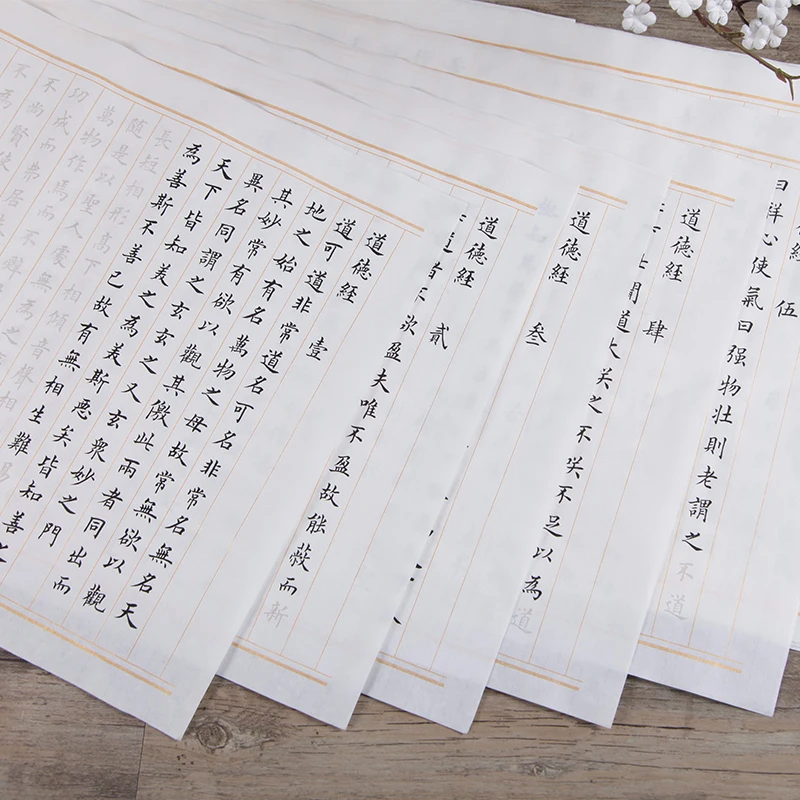 道德經 壹
道可道非常道名可名非常名無名天
地之始有名萬物之母故常無欲以觀
其妙常有欲以觀其徼此兩者同出而
異名同謂之玄玄之又玄衆妙之門
天下皆知美之為美斯惡矣皆知善之
為善斯不善已故有無相生難易
長短相形高下相傾音聲相
隨是以聖人處無為之
萬物作焉而不辭
功成而弗居
不尚賢使
道德經 貳
道者不欲盈夫唯不盈故能蔽而新
道德經 叁
道德經 肆
聞道大笑之不笑不足以為道
經 伍
曰祥心使氣曰强物壯則老謂之不道